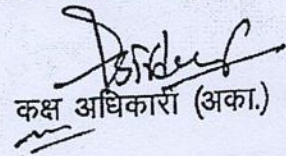 कक्ष अधिकारी (अका.)